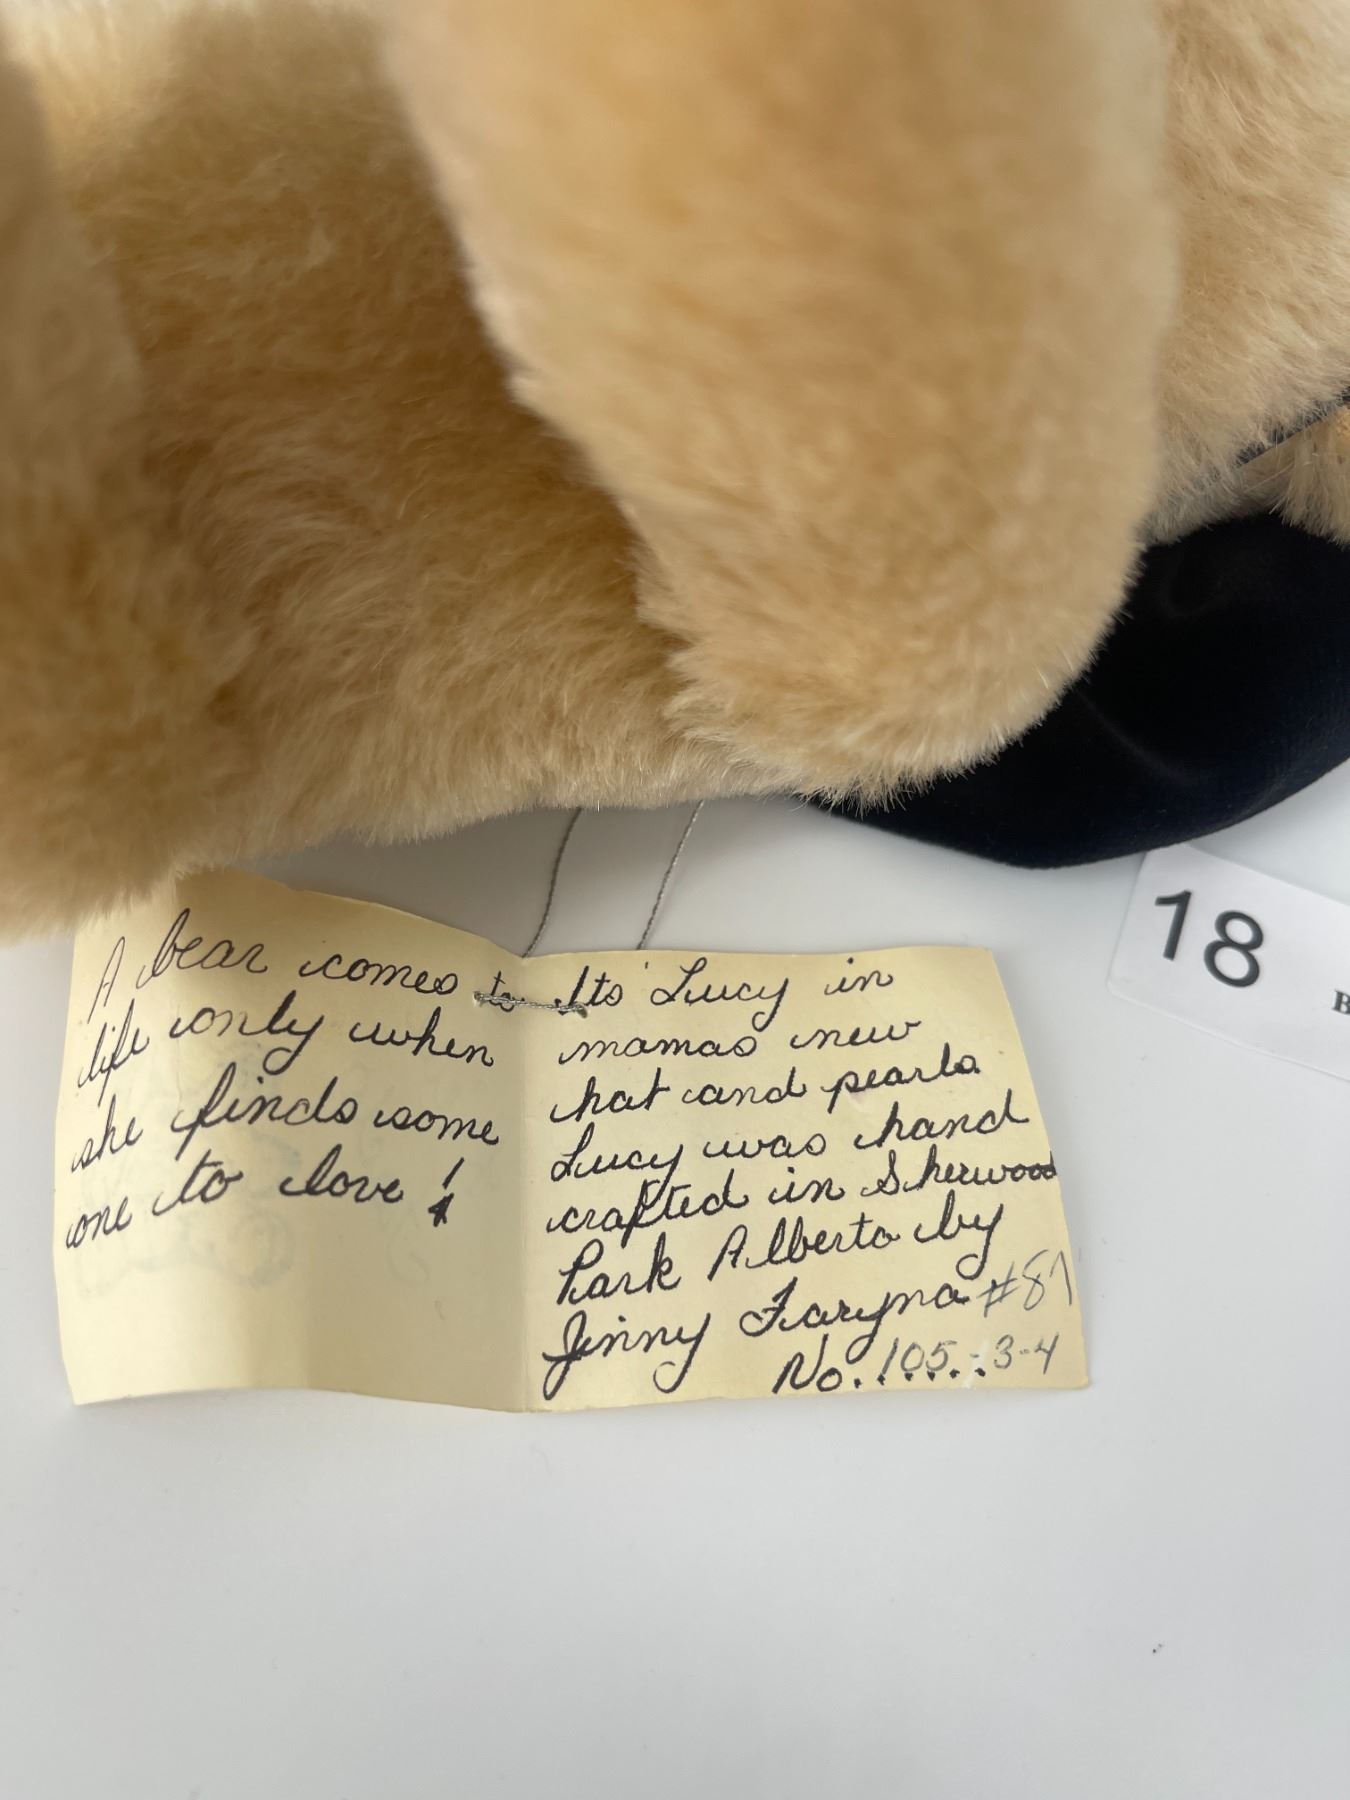 A bear comes to
life only when
she finds some
one to love!
Its Lucy in
mamas new
hat and pearls
Lucy was hand
crafted in Sherwood
Park Alberta by
Jinny Faryna #87
No. 105..3-4
18
B